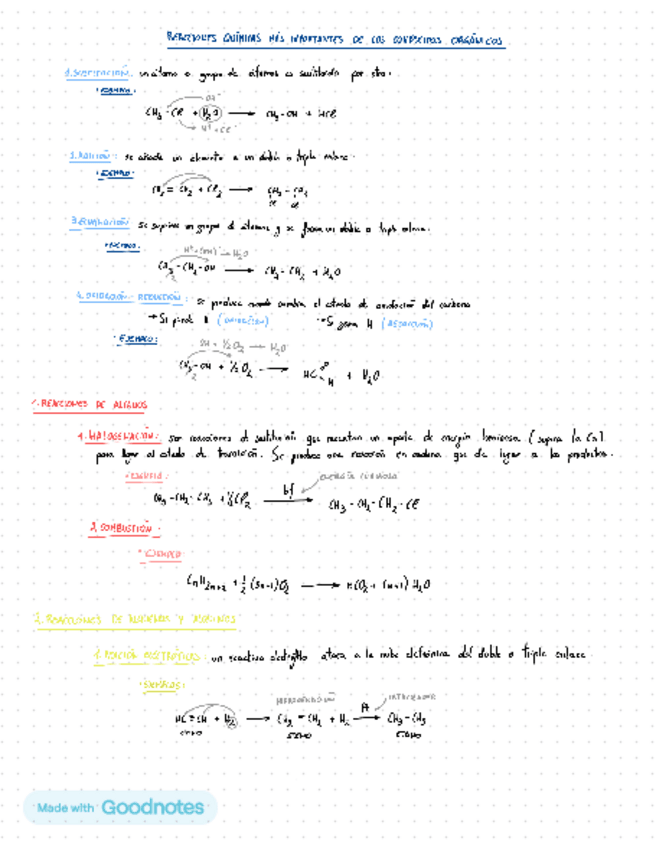 REACCIONES QUÍMICAS MÁS IMPORTANTES DE LOS COMPUESTOS ORGÁNICOS
1. SUSTITUCIÓN: un átomo o grupo de átomos es sustituido por otro.
· EJEMPLO:
OH⁻
CH₃-Cl + H₂O → CH₃-OH + HCl
H⁺ + Cl⁻
2. ADICIÓN: se añade un elemento a un doble o triple enlace.
· EJEMPLO:
CH₂ = CH₂ + Cl₂ → CH₂ - CH₂
Cl Cl
3. ELIMINACIÓN: Se suprime un grupo de átomos y se forma un doble o triple enlace.
· EJEMPLO:
→ H₂O
CH₃-CH₂-OH → + H₂O
4. OXIDACIÓN-REDUCCIÓN: se produce cuando cambia el estado de oxidación del carbono
→ Si pierde H (OXIDACIÓN) → Si gana H (REDUCCIÓN)
· EJEMPLO:
OH + ½ O₂ → H₂O
CH₃-OH + ½ O₂ → HC O H + H₂O
1. REACCIONES DE ALCANOS
1. HALOGENACIÓN: son reacciones de sustitución que necesitan un aporte de energía luminosa (supera la Ea)
para llegar al estado de transición. Se produce una reacción en cadena que da lugar a los productos.
· EJEMPLO:
ENERGÍA LUMINOSA
hf
CH₃-CH₂-CH₃ + ½ Cl₂ → CH₃-CH₂-CH₂-Cl
2. COMBUSTIÓN:
· EJEMPLO:
CnH2n+2 + ½ (3n+1)O₂ → nCO₂ + (n+1) H₂O
2. REACCIONES DE ALQUENOS Y ALQUINOS
1. ADICIÓN ELECTRÓFILA: un reactivo electrófilo ataca a la nube eletrónica del doble o triple enlace.
· EJEMPLOS:
HIDROGENACIÓN
Pt
HC ≡ CH + H₂ → CH₂ = CH₂ + H₂ → CH₃-CH₃
ETINO ETENO ETANO
Made with Goodnotes